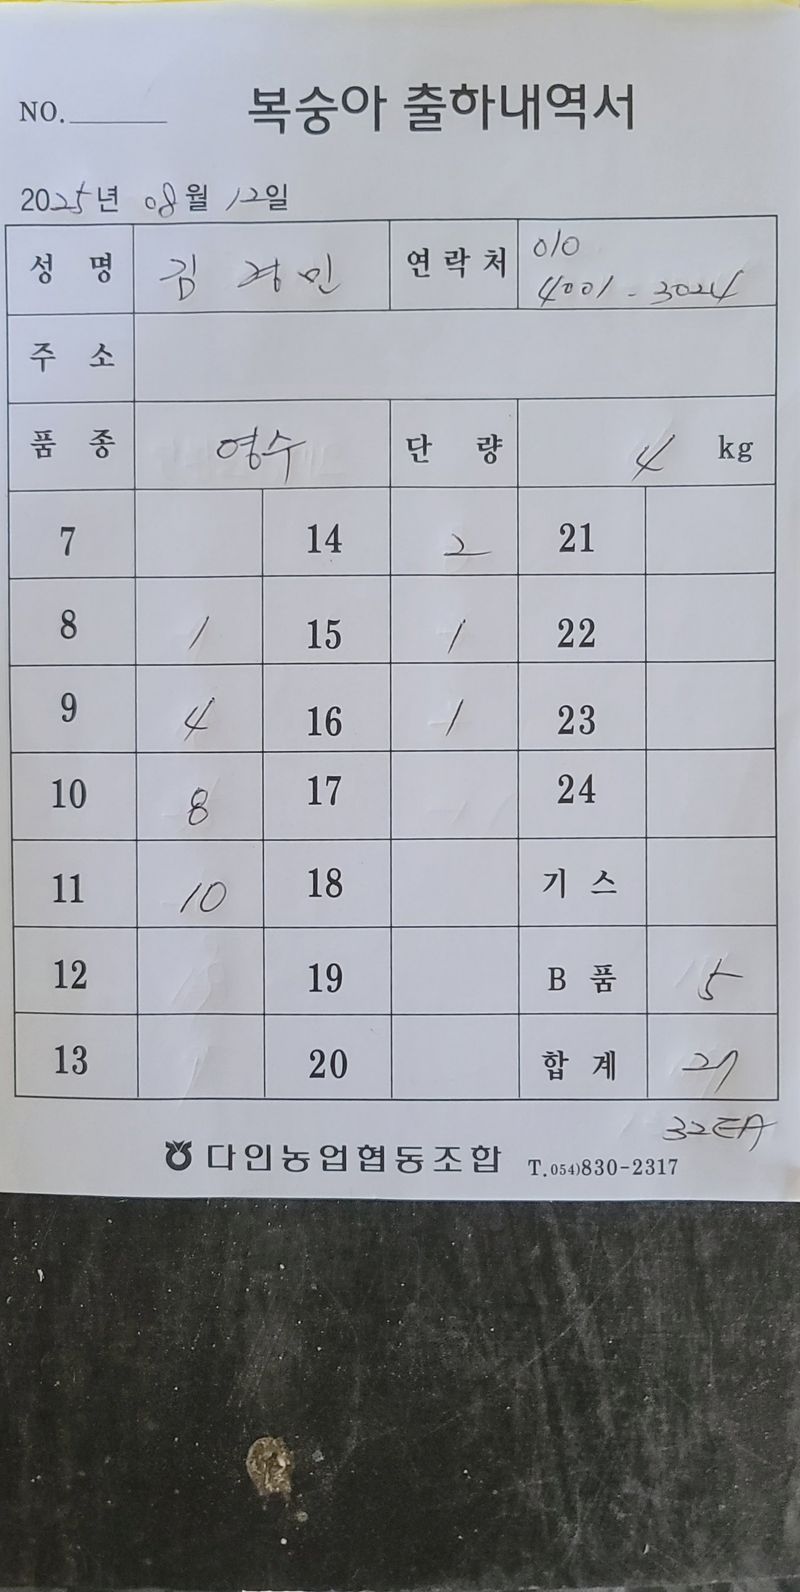 NO.
복숭아 출하내역서
2025년 08월 12일
성 명 김 정 민 연락처 010
4001-3024
주 소
품 종 영수 단 량 4 kg
7 14 2 21
8 1 15 1 22
9 4 16 1 23
10 8 17 24
11 10 18 기 스
12 19 B 품 5
13 20 합 계 27
32EA
다인농업협동조합 T.054)830-2317